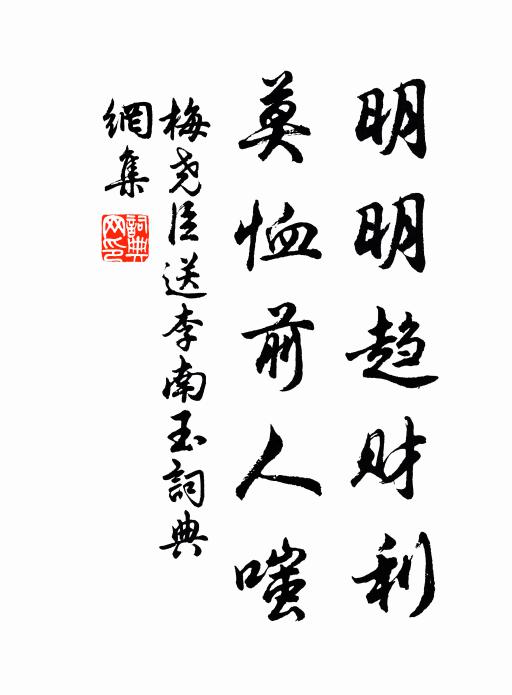 明明趋财利
莫恤前人嗤
梅尧臣送李南玉詞典
網集
詞典網印